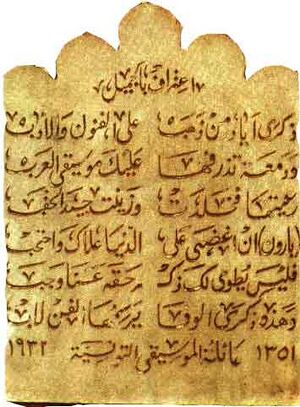 اعتراف بالجميل
ذكرى أياد من ذهب على الفنون والأدب
ودمعة تذرفها عليك موسيقى العرب
رعيتها فقلدت وزينت جيد الحقب
(بارون) ان اغضى على الدنيا علاك واحتجب
فليس يطوى لك ذكـ ـر حقه عنا وجب
وهذه ذكرى الوفا الفن لأب
١٣٥١ عائلة الموسيقى التونسية ١٩٣٢